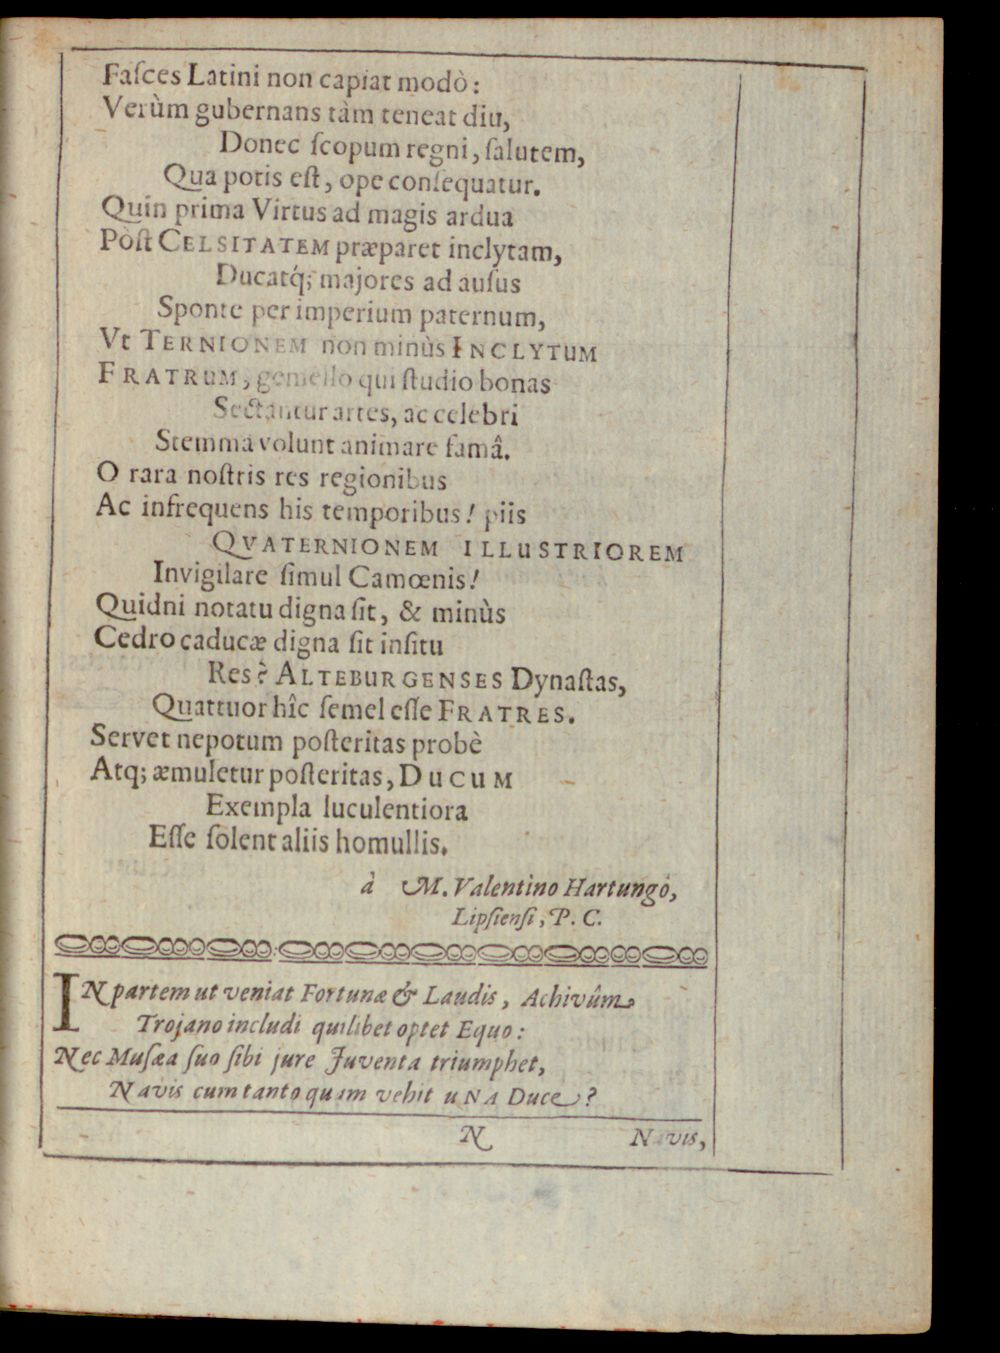 Faſces Latini non capiat modò:
Verùm gubernans tàm teneat diu,
Donec ſcopum regni, ſalutem,
Qua potis eſt, ope conſequatur.
Quin prima Virtus ad magis ardua
Pòſt CELSITATEM præparet inclytam,
Ducatq́; majores ad auſus
Sponte per imperium paternum,
Vt TERNIONEM non minùs INCLYTUM
FRATRUM, gemello qui ſtudio bonas
Sectantur artes, ac celebri
Stemma volunt animare famâ.
O rara noſtris res regionibus
Ac infrequens his temporibus! piis
QVATERNIONEM ILLUSTRIOREM
Invigilare ſimul Camœnis!
Quidni notatu digna ſit, & minùs
Cedro caducæ digna ſit inſitu
Res? ALTEBURGENSES Dynaſtas,
Quattuor hîc ſemel eſſe FRATRES.
Servet nepotum poſteritas probè
Atq; æmuletur poſteritas, DUCUM
Exempla luculentiora
Eſſe ſolent aliis homullis.
à M. Valentino Hartungo,
Lipſienſi, P. C.
IN partem ut veniat Fortunæ & Laudis, Achivûm
Trojano includi quilibet optet Equo:
Nec Muſæa ſuo ſibi jure Juventa triumphet,
Navis cum tanto quam vehit uNA Duce?
N Navis,